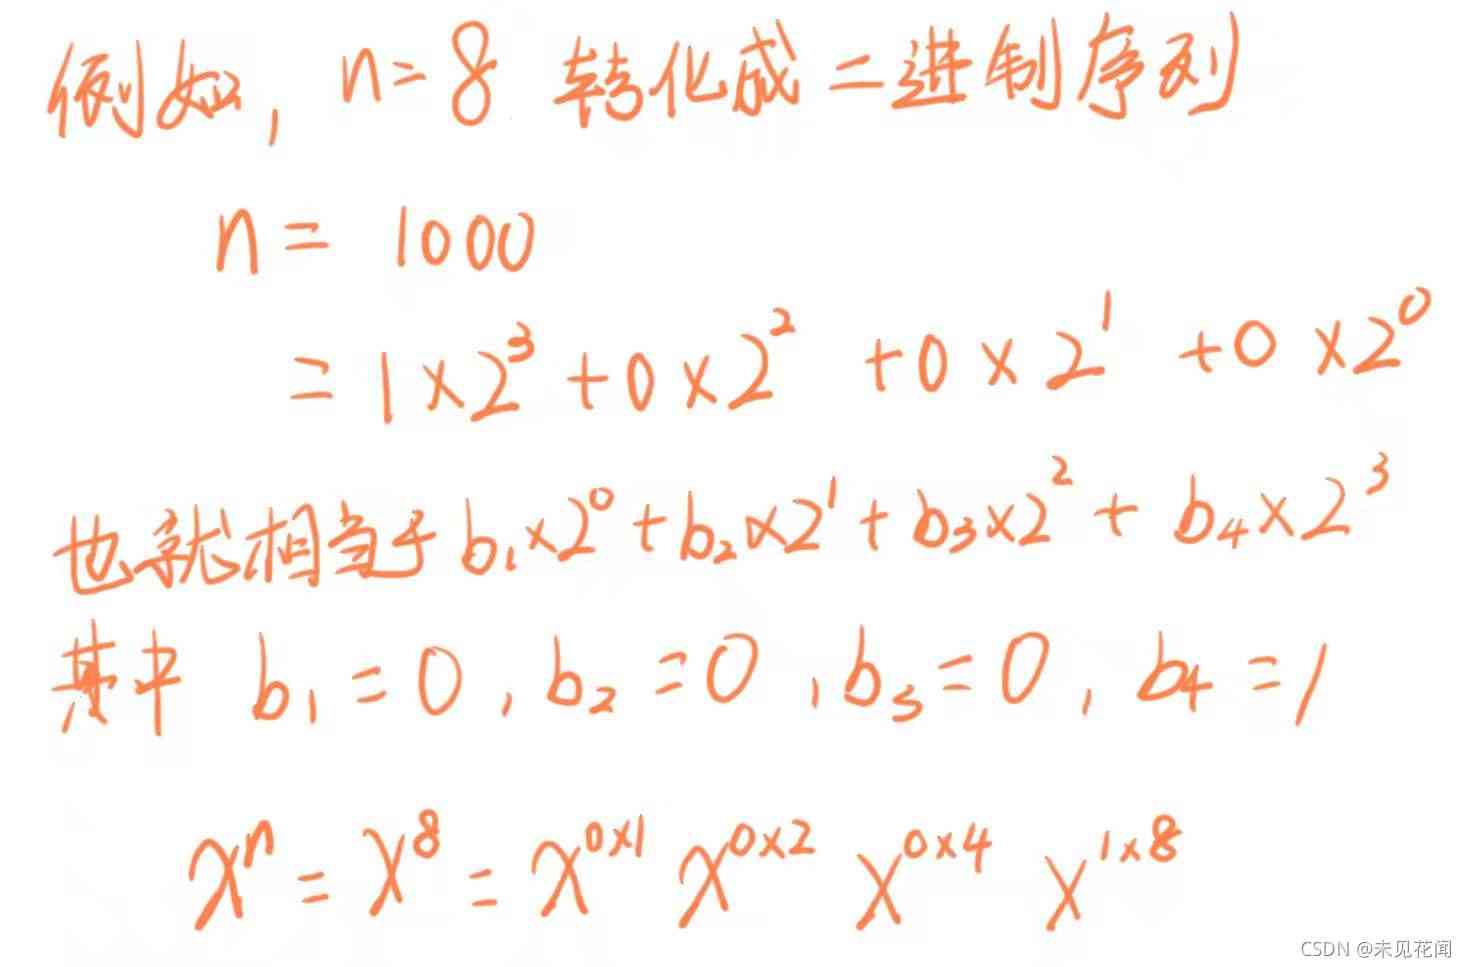 例如, n=8 转化成二进制序列
n= 1000
=1×2³+0×2²+0×2¹+0×2⁰
也就相当于b₁×2⁰+b₂×2¹+b₃×2²+b₄×2³
其中 b₁=0,b₂=0,b₃=0,b₄=1
xⁿ=x⁸=x⁰ˣ¹ x⁰ˣ² x⁰ˣ⁴ x¹ˣ⁸
CSDN @未见花闻